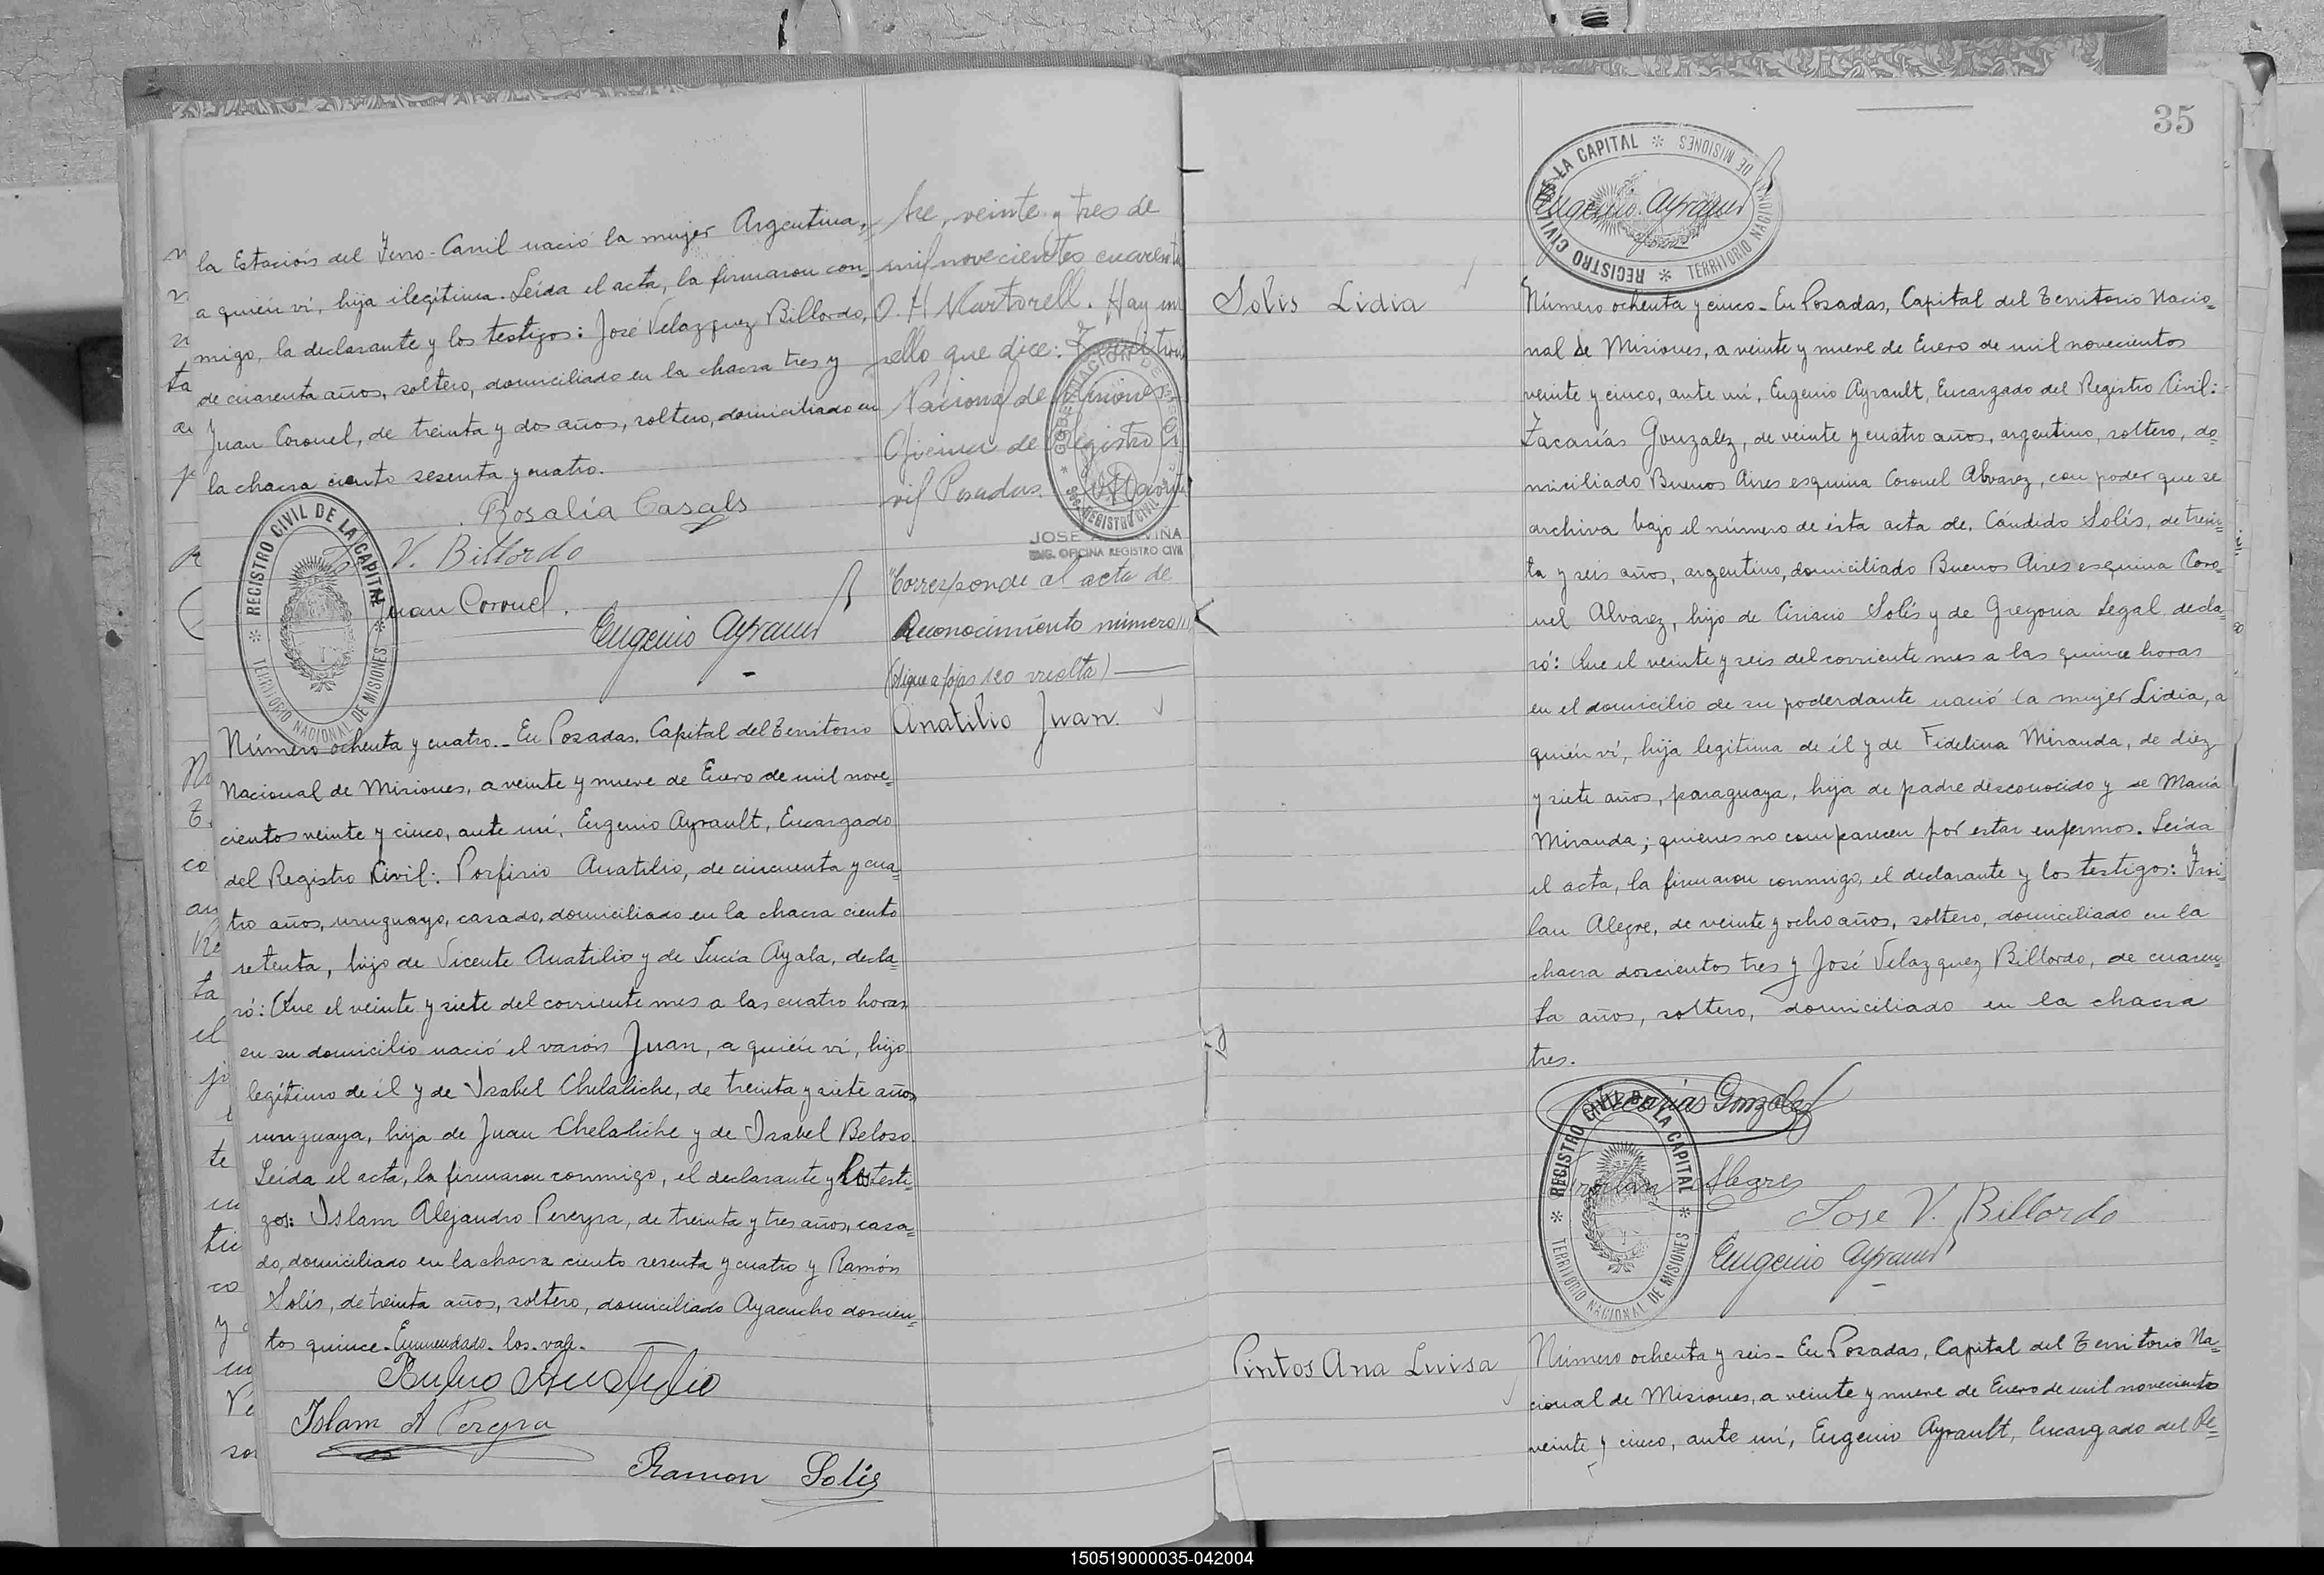 la Estación del Ferro-Carril nació la mujer Argentina,
a quién ví, hija ilegítima. Leída el acta, la firmaron con-
migo, la declarante y los testigos: José Velazquez Billordo,
de cuarenta años, soltero, domiciliado en la chacra tres y
Juan Coronel, de treinta y dos años, soltero, domiciliado en
la chacra ciento sesenta y cuatro.
Rosalía Casals
V. Billordo
Juan Coronel.
Eugenio Ayrault
REGISTRO CIVIL DE LA CAPITAL
TERRITORIO NACIONAL DE MISIONES
bre, veinte y tres de
mil novecientos cuarenta
O. H. Martorell. Hay un
sello que dice:
Nacional de Misiones
Oficina de Registro Ci
vil Posadas.
GOBERNACION DE MISIONES
REGISTRO CIVIL
JOSE
ENC. OFICINA REGISTRO CIVIL
"Corresponde al acta de
Reconocimiento número
(sigue a fojas 120 vuelta)
Anatilio Juan
Número ochenta y cuatro._ En Posadas, Capital del Territorio
Nacional de Misiones, a veinte y nueve de Enero de mil nove=
cientos veinte y cinco, ante mí, Eugenio Ayrault, Encargado
del Registro Civil: Porfirio Anatilio, de cincuenta y cua=
tro años, uruguayo, casado, domiciliado en la chacra ciento
setenta, hijo de Vicente Anatilio y de Lucía Ayala, decla=
ró: Que el veinte y siete del corriente mes a las cuatro horas
en su domicilio nació el varón Juan, a quién ví, hijo
legítimo de él y de Isabel Chelaliche, de treinta y siete años
uruguaya, hija de Juan Chelaliche y de Isabel Beloso.
Leída el acta, la firmaron conmigo, el declarante y los testi=
gos: Islam Alejandro Pereyra, de treinta y tres años, casa=
do, domiciliado en la chacra ciento sesenta y cuatro y Ramón
Solís, de treinta años, soltero, domiciliado Ayacucho doscien=
tos quince. Enmendado. los. vale.
Anatilio
Islam A Pereyra
Ramon Solis
35
REGISTRO CIVIL DE LA CAPITAL
TERRITORIO NACIONAL DE MISIONES
Eugenio Ayrault
Solis Lidia
Número ochenta y cinco_ En Posadas, Capital del Territorio Nacio=
nal de Misiones, a veinte y nueve de Enero de mil novecientos
veinte y cinco, ante mí, Eugenio Ayrault, Encargado del Registro Civil:
Zacarías Gonzalez, de veinte y cuatro años, argentino, soltero, do=
miciliado Buenos Aires esquina Coronel Alvarez, con poder que se
archiva bajo el número de ésta acta de, Cándido Solís, de trein=
ta y seis años, argentino, domiciliado Buenos Aires esquina Coro=
nel Alvarez, hijo de Ciriaco Solís y de Gregoria Legal decla=
ró: Que el veinte y seis del corriente mes a las quince horas
en el domicilio de su poderdante nació la mujer Lidia, a
quién ví, hija legítima de él y de Fidelina Miranda, de diez
y siete años, paraguaya, hija de padre desconocido y de María
Miranda; quienes no comparecen por estar enfermos. Leída
el acta, la firmaron conmigo, el declarante y los testigos: Froi=
lan Alegre, de veinte y ocho años, soltero, domiciliado en la
chacra doscientos tres y José Velazquez Billordo, de cuaren=
ta años, soltero, domiciliado en la chacra
tres.
Zacarías Gonzalez
Froilan Alegre
Jose V. Billordo
Eugenio Ayrault
REGISTRO CIVIL DE LA CAPITAL
TERRITORIO NACIONAL DE MISIONES
Pintos Ana Luisa
Número ochenta y seis_ En Posadas, Capital del Territorio Na=
cional de Misiones, a veinte y nueve de Enero de mil novecientos
veinte y cinco, ante mí, Eugenio Ayrault, Encargado del Re=
150519000035-042004